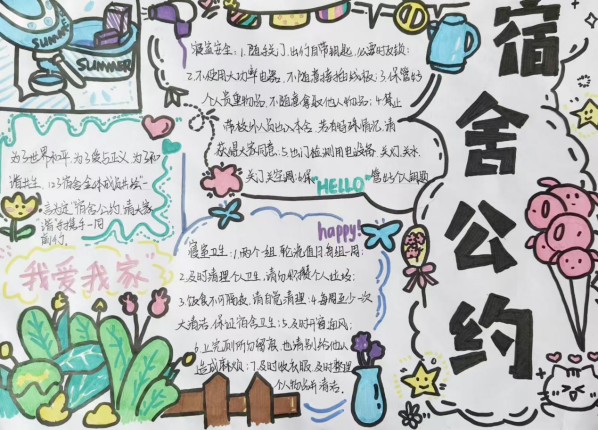 宿舍公约
SUMMER
SUMMER
寝室安全:1.随手关门,出门自带钥匙,公寓时反锁;
2.不使用大功率电器,不随意接拍线板;3.保管好
个人贵重物品,不随意拿取他人物品;4.禁止
带校外人员出入本舍,若有特殊情况,请
获得大家同意;5.出门检测用电设备,关灯.关水.
关门.关空调;6.保管好个人钥匙
"HELLO"
为了世界和平,为了爱与正义,为了和
谐共生,123宿舍全体成员共绘一
宿舍公约,请大家
携手
"我爱我家"
happy!
寝室卫生:1.两个一组,轮流值日每组一周;
2.及时清理个人卫生,请勿堆攒个人垃圾;
3.饮食不可随丢,请自觉清理;4.每周至少一次
大清洁,保证宿舍卫生;5.及时开窗通风;
6.上完厕所勿留痕,也请别给他人
造成麻烦;7.及时收衣服,及时整理
个人物品并清洁.